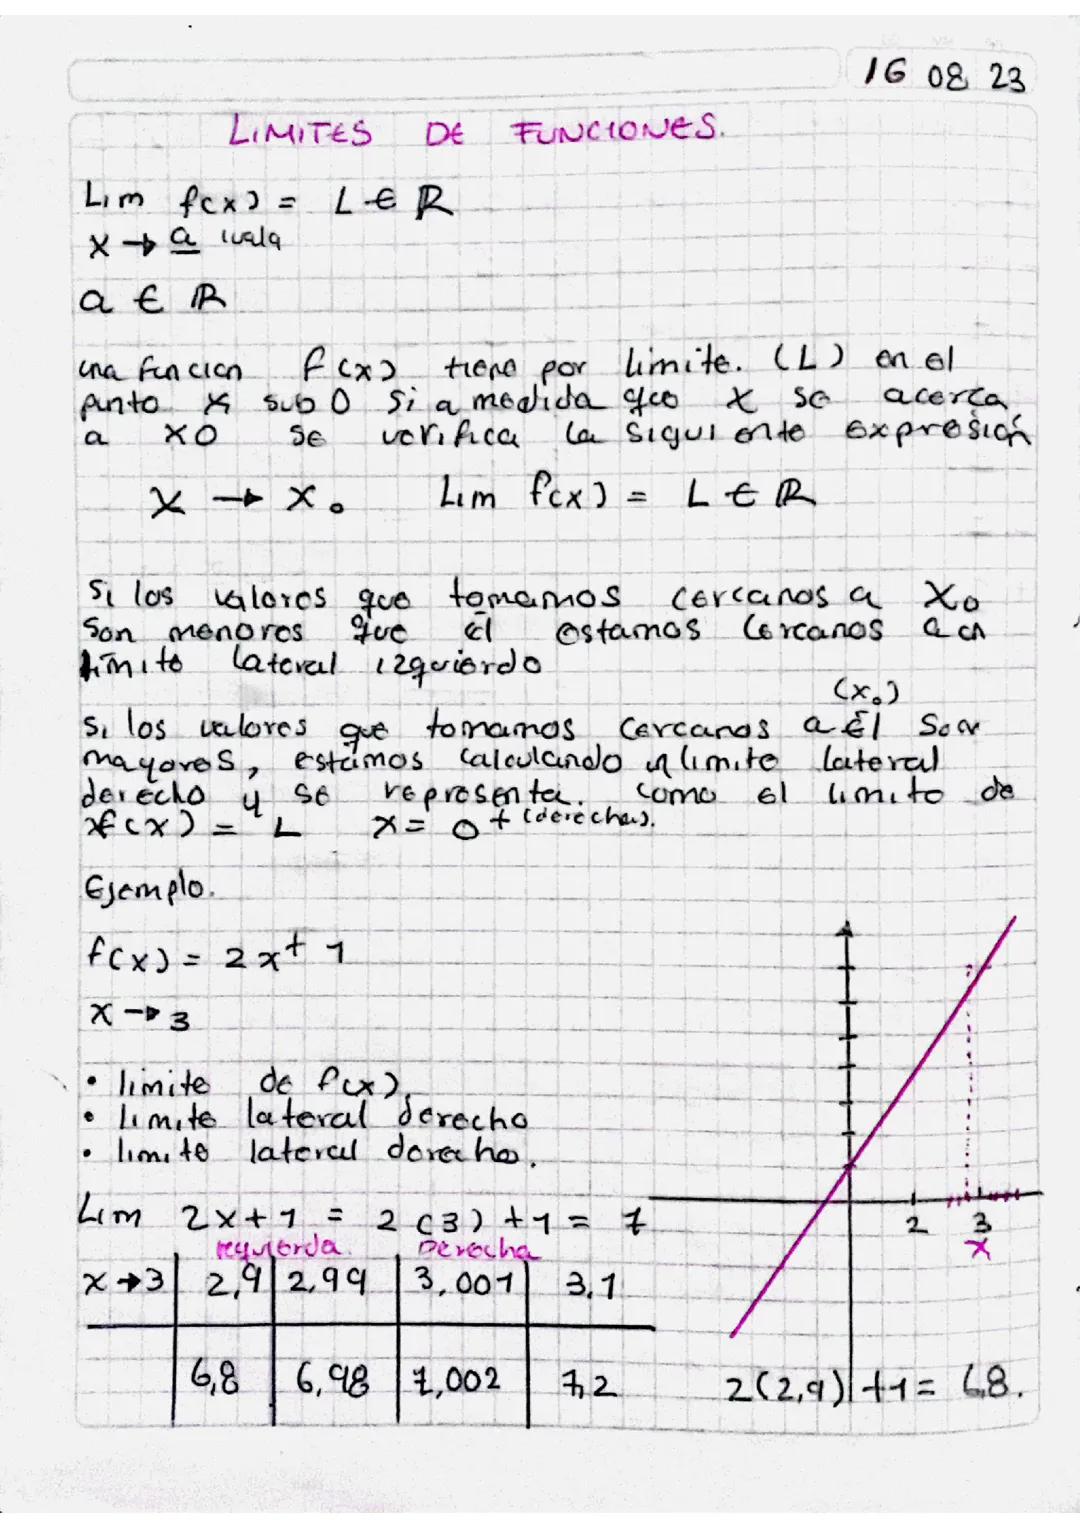 16 08 23
LIMITES DE FUNCIONES.
Lim f(x) = L ∈ ℝ
x → a
a ∈ ℝ
una función f(x) tiene por limite. (L) en el
punto x sub 0 si a medida que x se acerca
a x0 se verifica la siguiente expresión
x → x₀ Lim f(x) = L ∈ ℝ
Si los valores que tomamos cercanos a x₀
son menores que él estamos cercanos a un
límite lateral izquierdo
(x₀)
Si los valores que tomamos cercanos a Él Son
mayores, estamos calculando un limite lateral
derecho y se representa. como el limite de
f(x) = L x = 0 + (derecha).
Ejemplo.
f(x) = 2x + 1
x → 3
• limite de f(x)
• limite lateral derecho
• limite lateral derecho.
Lim 2x+1 = 2(3)+1 = 7
izquierda. Derecha
x → 3 2,9 2,99 3,001 3,1
6,8 6,98 7,002 7,2
2 3
x
2(2,9)+1 = 6,8.